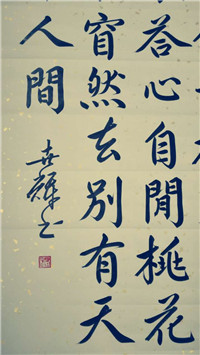 答心自閒桃花
窅然去別有天
人間
喜輝书